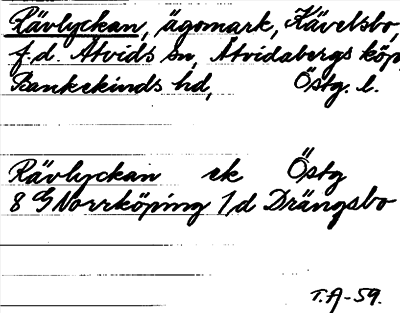 Rävlyckan, ägomark, Kävelsbo,
f.d. Åtvids sn, Åtvidabergs köp,
Bankekinds hd, Östg. l.
Rävlyckan ek Östg
8 G Norrköping 1,d Drängsbo
T.A-59.